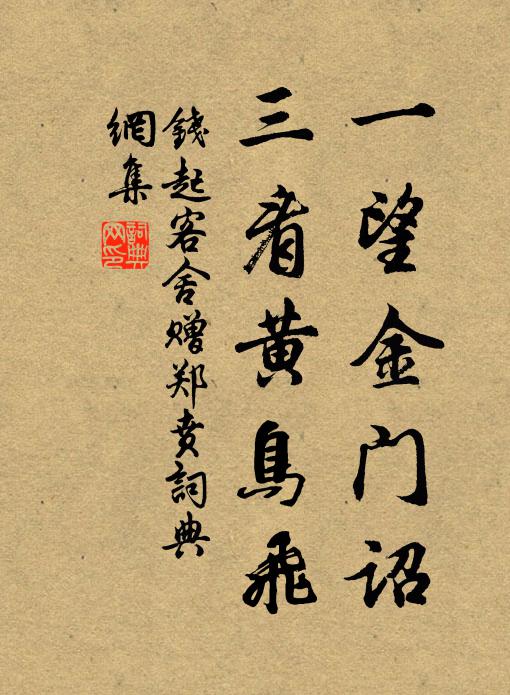 一望金门诏
三看黄鸟飛
錢起客舍赠郑贲詞典
網集
詞典
网印